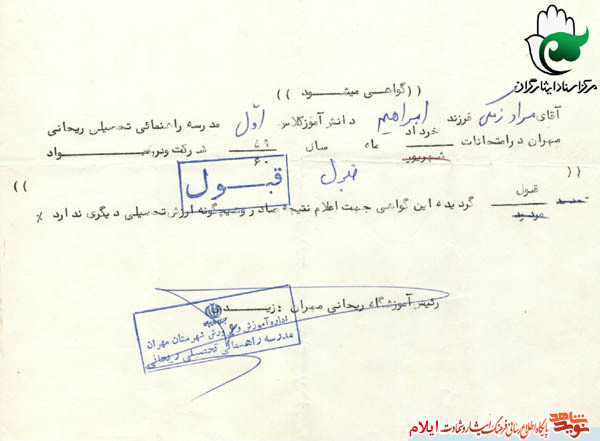 مرکز اسناد ایثارگران
((گواهی میشود))
آقای مراد زنگی فرزند ابراهیم دانش آموز کلاس اول مدرسه راهنمائی تحصیلی ریحانی
مهران در امتحانات خرداد شهریور ماه سال ۶۰ شرکت و در مواد
(( قبول ))
قبول
تجدید قبول مردود گردیده این گواهی جهت اعلام نتیجه صادر و هیچگونه ارزش تحصیلی دیگری ندارد ٪
رئیس آموزشگاه ریحانی مهران : زیدی
اداره آموزش و پرورش شهرستان مهران
مدرسه راهنمائی تحصیلی ریحانی
نوید شاهد پایگاه اطلاع رسانی فرهنگ ایثار و شهادت ایلام